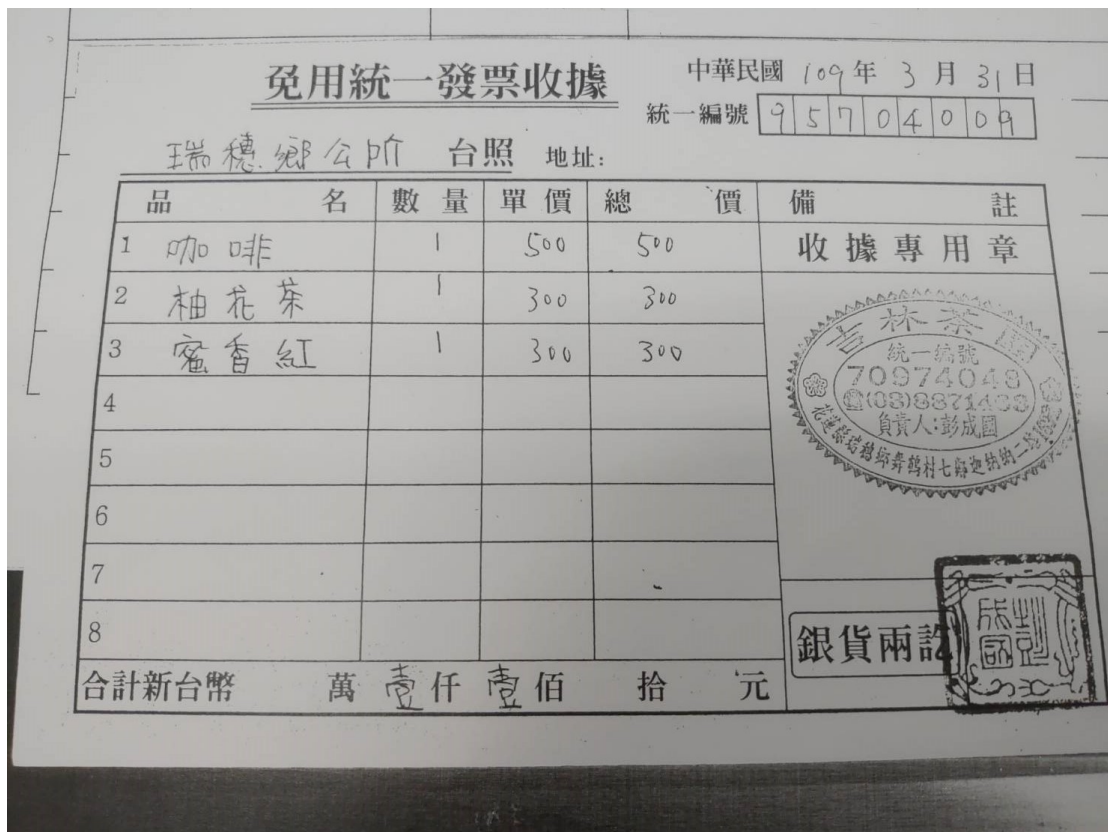 免用統一發票收據
中華民國 109 年 3 月 31 日
統一編號 95704009
瑞穗鄉公所 台照 地址:
品名 數量 單價 總價 備註
1 咖啡 1 500 500
2 柚花茶 1 300 300
3 蜜香紅 1 300 300
4
5
6
7
8
收據專用章
吉林茶園
統一編號
70974048
(03)8871463
負責人:彭成國
花蓮縣瑞穗鄉舞鶴村七鄰迦納納二路
銀貨兩訖
彭成國
合計新台幣 萬 壹 仟 壹 佰 拾 元